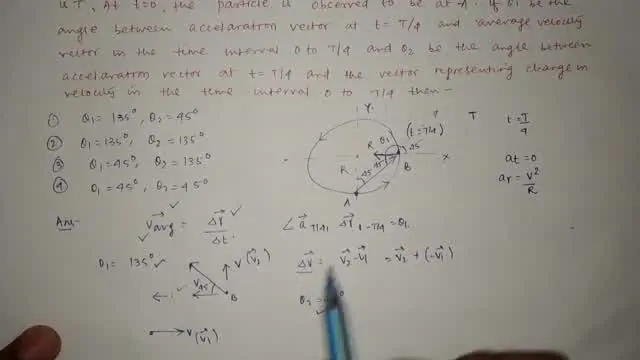 is T, At t=0, the particle is observed to be at A. If θ1 be the
angle between accelaration vector at t = T/4 and average velocity
vector in the time interval 0 to T/4 and θ2 be the angle between
accelaration vector at t= T/4 and the vector representing change in
velocity in the time interval 0 to T/4 then -
① θ1 = 135°, θ2 = 45°
② θ1 = 135°, θ2 = 135°
③ θ1 = 45°, θ2 = 135°
④ θ1 = 45°, θ2 = 45°
Y
R
R
θ1
(t = T/4)
45
45
45
A
B
X
T
t = T/4
at = 0
ar = V²/R
Ans-
Vavg = Δr/Δt
∠ a T/4, Δr 0-T/4 = θ1
θ1 = 135° ✓
V (V2)
45
B
V (V1)
ΔV = V2 - V1 = V2 + (-V1)
θ2 =